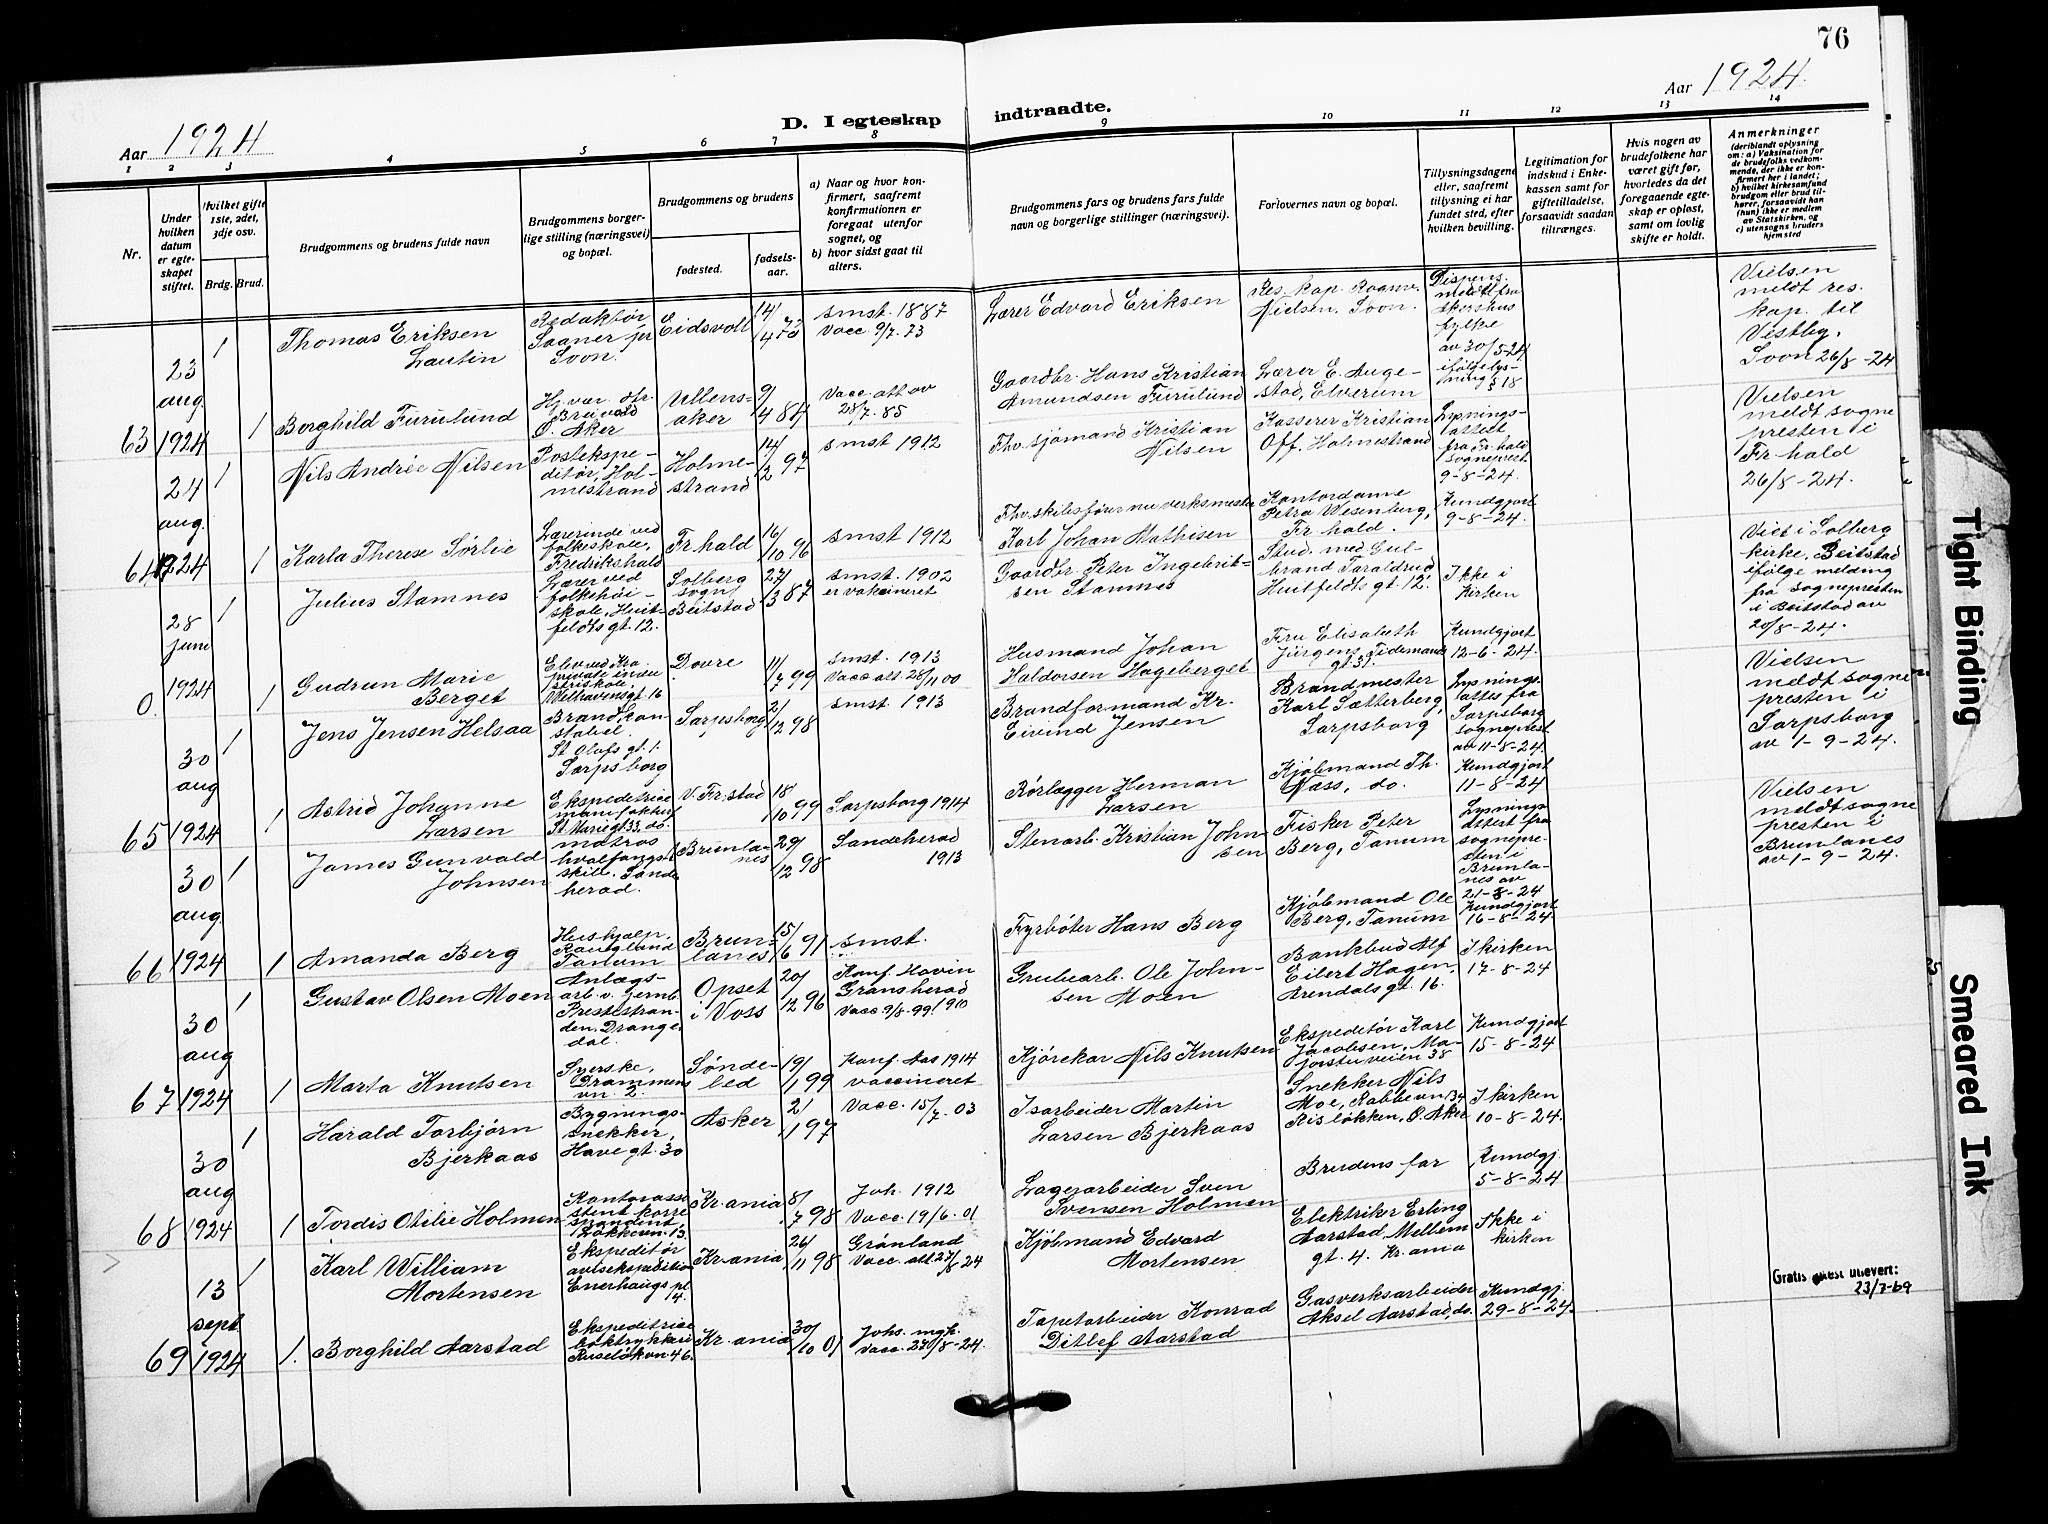 76
Aar 1924
Aar 1924.
D. I egteskap indtraadte.
1 2 3 4 5 6 7 8 9 10 11 12 13 14
Nr.
Under hvilken datum er egteskapet stiftet.
Hvilket gifte 1ste, 2det, 3dje osv.
Brdg. Brud.
Brudgommens og brudens fulde navn
Brudgommens borgerlige stilling (næringsvei) og bopæl.
Brudgommens og brudens
fødested.
fødselsaar.
a) Naar og hvor konfirmert, saafremt konfirmationen er foregaat utenfor sognet, og
b) hvor sidst gaat til alters.
Brudgommens fars og brudens fars fulde navn og borgerlige stillinger (næringsvei).
Forlovernes navn og bopæl.
Tillysningsdagene eller, saafremt tillysning ei har fundet sted, efter hvilken bevilling.
Legitimation for indskud i Enkekassen samt for giftetilladelse, forsaavidt saadan tiltrænges.
Hvis nogen av brudefolkene har været gift før, hvorledes da det foregaaende egteskap er opløst, samt om lovlig skifte er holdt.
Anmerkninger
(deriblandt oplysning om: a) Vaksination for de brudefolks vedkommende, der ikke er konfirmert her i landet; b) hvilket kirkesamfund brudgom eller brud tilhører, forsaavidt han (hun) ikke er medlem av Statskirken, og c) utensogns bruders hjemsted
63
23 aug. 1924
1
Thomas Eriksen Lautin
Redaktør Soaner pr Soon.
Eidsvoll
14/4 73
smst. 1887
Vacc. 9/7. 73
Lærer Edvard Eriksen
Res. kap. Ragnv. Nielsen, Soon.
Dispens. meddelt fra Akershus fylke av 30/5-24 ifølge lysning § 18
Vielsen meldt res. kap. til Vestby, Soon 26/8-24
1
Borghild Furulund
Breivold Ø. Aker
Ullensaker
9/4 84
Vacc. att av 28/7. 85
Gaardbr. Hans Kristian Amundsen Furulund
Lærer E. Augestad, Elverum
64
24 aug. 1924
1
Nils Andrée Nilsen
Postekspeditør, Holmestrand
Holmestrand
14/2 97
smst 1912
Fhv. sjømand Kristian Nilsen
Kasserer Kristian Off. Holmestrand
Lysningsattest fra Fr.hald sogneprest 9-8-24.
Vielsen meldt sognepresten i Fr hald 26/8-24.
1
Karla Therese Sørlie
Lærerinde ved folkeskole, Fredrikshald
Fr hald
16/10 96
smst 1912
Fhv. skibsfører nu verksmester Karl Johan Mathisen
Kontordame Petra Wesenberg, Fr hald.
Kundgjort 9-8-24.
0.
28 juni 1924
1
Julius Stamnes
Lærer ved folkehøiskole, Huitfeldts gt. 12.
Solberg sogn, Beitstad
27/3 87
smst. 1902
er vakcineret
Gaardbr. Peter Ingebritsen Stamnes
Stud. med. Gulbrand Taraldrud Huitfeldts gt. 12.
Ikke i kirken
Viet i Solberg kirke, Beitstad ifølge melding fra sognepresten i Beitstad av 20/8-24.
1
Gudrun Marie Berget
Elev ved Kra private industriskole. Welhavensgt. 16
Dovre
11/7 99
smst. 1913
Vacc att. 28/11 00
Husmand Johan Haldorsen Hageberget
Fru Elisabeth Jürgens, Tidemands gt. 31.
Kundgjort 12-6-24.
65
30 aug 1924
1
Jens Jensen Helsaa
Brandkonstabel. St Olafs gt. 1. Sarpsborg
Sarpsborg
2/12 98
smst. 1913
Brandformand Kr. Eivind Jensen
Brandmester Karl Sætterberg, Sarpsborg
Lysningsattes fra Sarpsborg sogneprest av 11-8-24.
Vielsen meldt sognepresten i Sarpsborg av 1-9-24.
1
Astrid Johanne Larsen
Ekspeditrice manufaktur St. Marie gt 33, do.
V. Fr.stad
18/10 99
Sarpsborg 1914
Rørlægger Herman Larsen
Kjøbmand Th. Nass, do.
Kundgjort 11-8-24
66
30 aug. 1924
1
James Gunvald Johnsen
matros hvalfangstskib. Sandeherad.
Brunlanes
29/12 98
Sandeherad 1913
Stenarb. Kristian Johnsen
Fisker Peter Berg, Tanum
Lysningsattest fra sognepresten i Brunlanes av 21-8-24
Vielsen meldt sognepresten i Brunlanes av 1-9-24.
1
Amanda Berg
Hushjælp. Tanum
Brunlanes
15/6 91
smst.
Fyrbøter Hans Berg
Kjøbmand Ole Berg, Tanum
Kundgjort 16-8-24
67
30 aug 1924
1
Gustav Olsen Moen
Anlægsarb. v. jernb. Prestestranden, Drangedal.
Opset i Voss
20/12 96
Konf. Hovin Gransherad 1910
Vacc 9/8-99
Grubearb. Ole Johnsen Moen
Bankbud Alf Eilert Hagen, Arendals gt. 16.
I kirken 17-8-24
1
Marta Knutsen
Syerske, Drammensvn. 2.
Søndeled
19/1 99
Konf. Aas 1914
vaccineret
Kjørekar Nils Knutsen
Ekspeditør Karl Jacobsen, Majorstuveien 38
Kundgjort 15-8-24
68
30 aug 1924
1
Harald Torbjørn Bjerkaas
Bygningssnekker, Have gt. 30
Asker
2/1 97
Vacc. 15/7. 03
Isarbeider Martin Larsen Bjerkaas
Snekker Nils Moe, Risløkken, Ø. Aker
I kirken 10-8-24.
1
Tordis Otilie Holmen
Kontorassistent korrespondent Løkkevn. 13.
Kr.ania
8/7 98
Joh. 1912
Vacc. 19/6. 01
Lagerarbeider Sven Svensen Holmen
Brudens far
Kundgj. 5-8-24
69
13 sept. 1924
1
Karl William Mortensen
Ekspeditør avisekspedition Enerhaugs pl. 4.
Kr.ania
26/11 98
Grønland
Vacc. att 27/8 24
Kjøbmand Edvard Mortensen
Elektriker Erling Aarstad, Mellem gt. 4. Kr.ania
Ikke i kirken
Gratis attest utlevert: 23/7-69
1.
Borghild Aarstad
Ekspeditrice boktrykkeri Ruseløkvn. 46.
Kr.ania
30/10 01
Johs. mgk.
Vacc. 230/8-24.
Tapetarbeider Konrad Ditlef Aarstad
Gasverksarbeider Aksel Aarstad, do.
Kundgj. 29-8-24.
Tight Binding
Smeared Ink